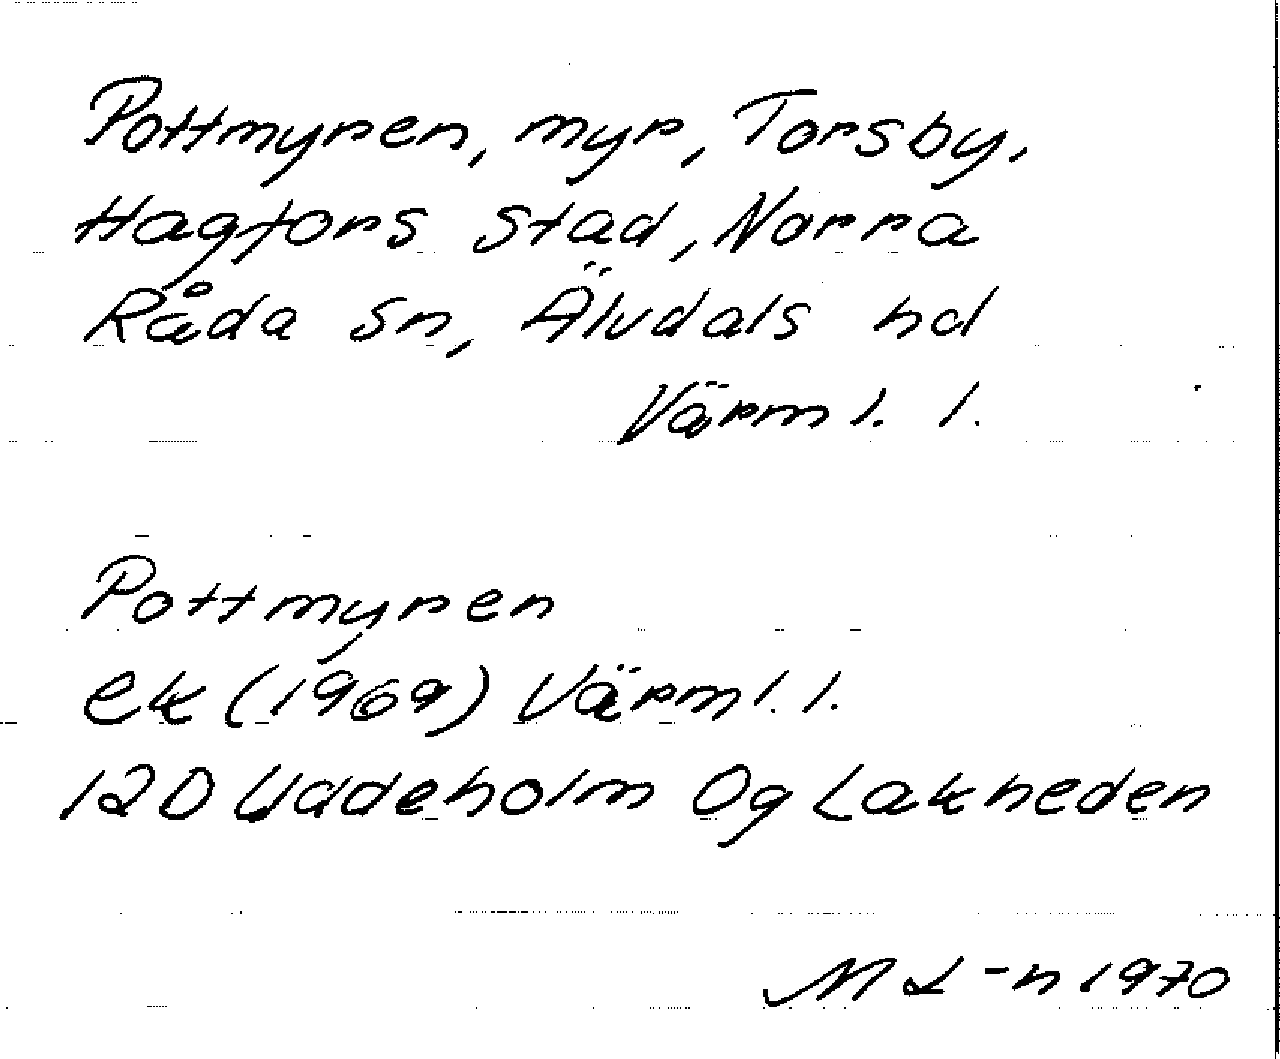 Pottmyren, myr, Torsby,
Hagfors stad, Norra
Råda sn, Älvdals hd
Värml. l.
Pottmyren
ek (1969) Värml. l.
12D Uddeholm Og Lakheden
M L-n 1970